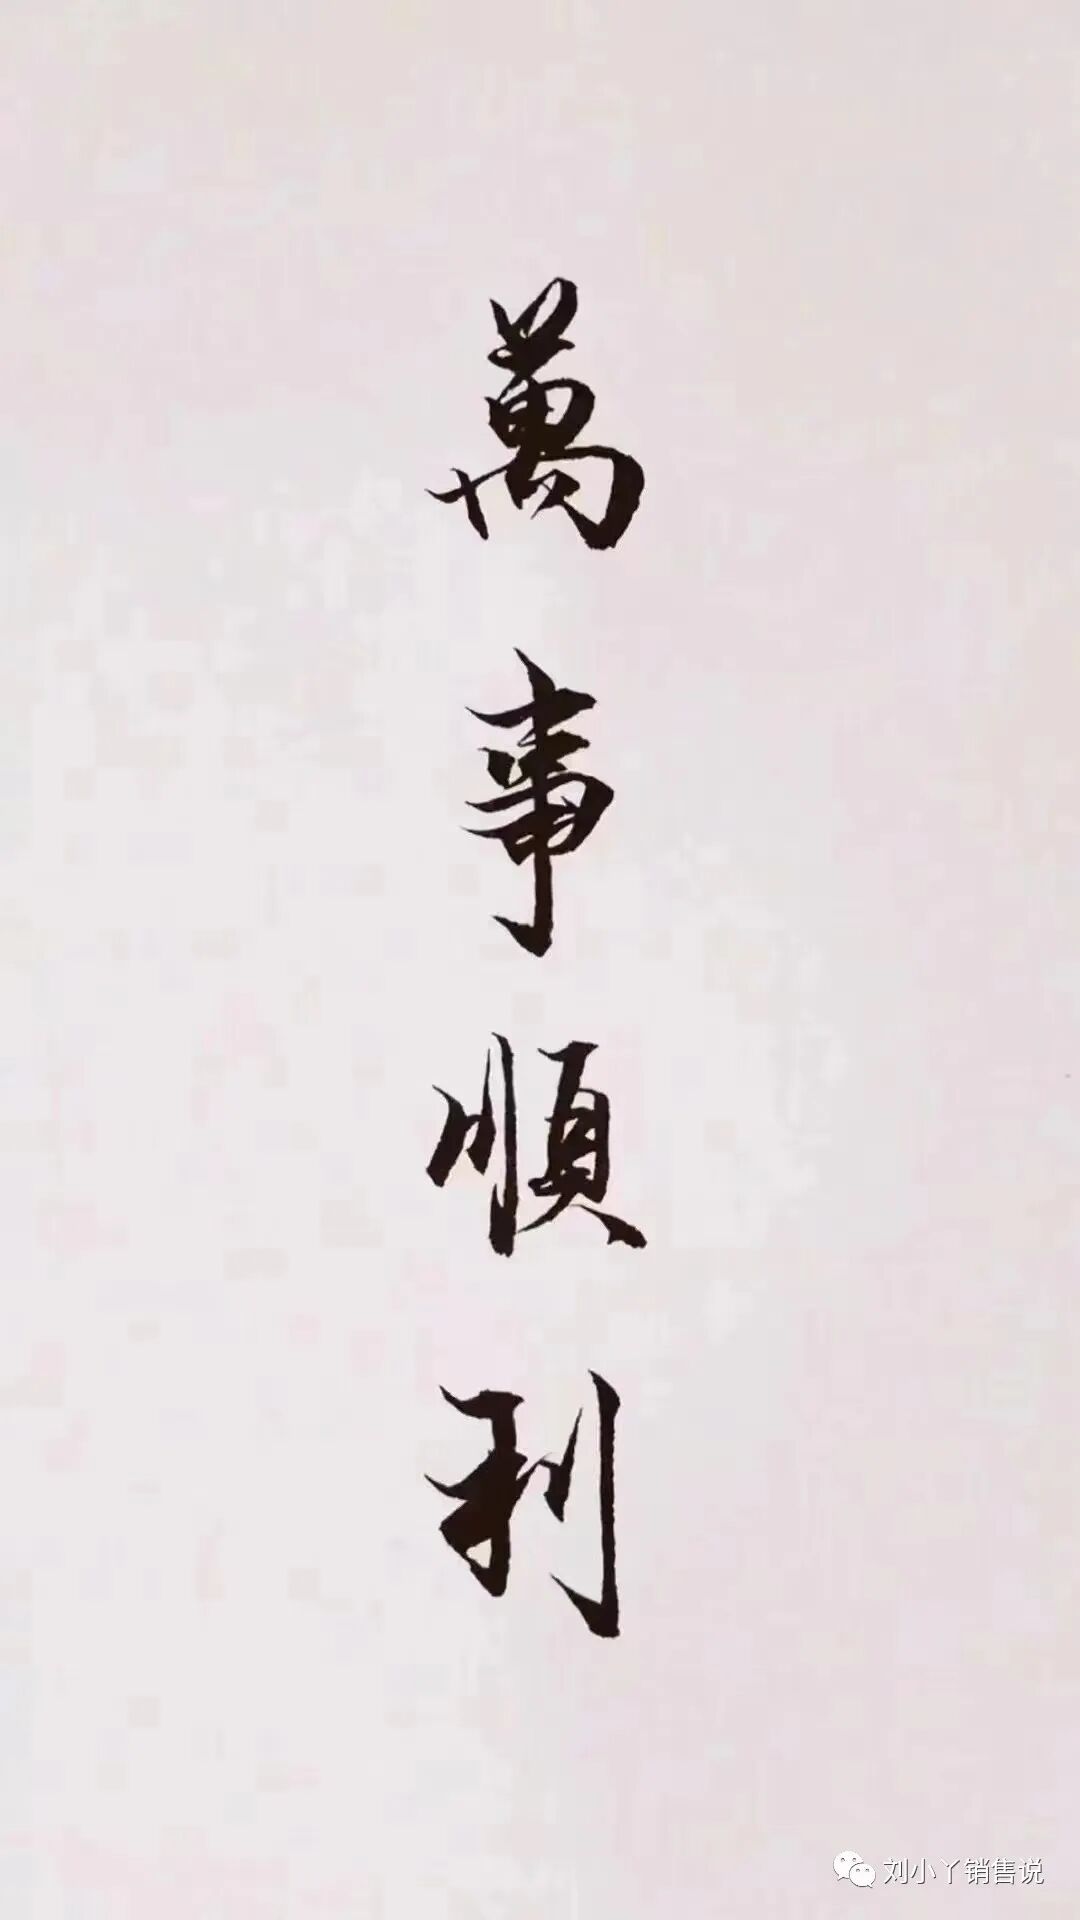 萬事順利
刘小丫销售说